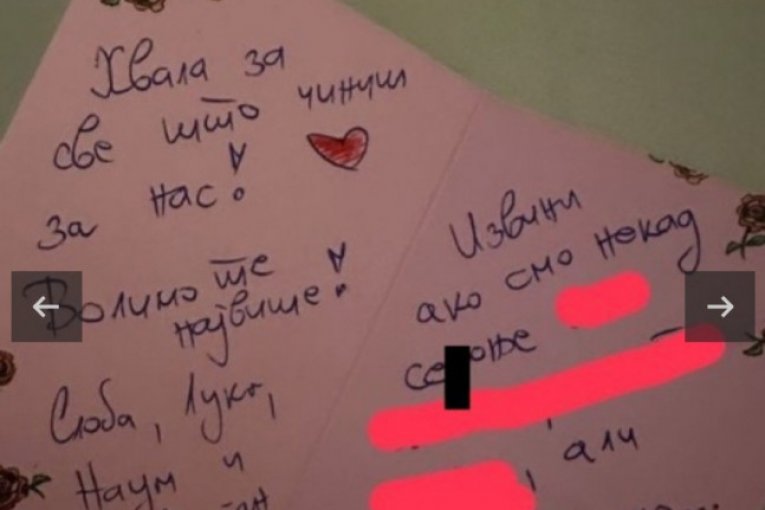 Хвала за
све што чиниш
за нас!
Волимо те
највише!
Слоба, Лука,
Наум и
Извини
ако смо некад
али